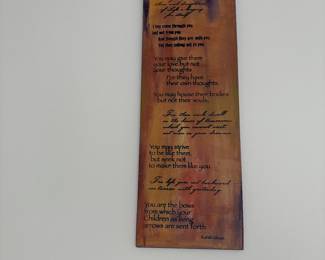 of Life's longing
for itself
They come through you
but not from you
And though they are with you
Yet they belong not to you
You may give them
your love but not
your thoughts
For they have
their own thoughts
You may house their bodies
but not their souls,
For their souls dwell
in the house of tomorrow
which you cannot visit
not even in your dreams
You may strive
to be like them,
but seek not
to make them like you
For life goes not backward
nor tarries with yesterday
You are the bows
from which your
Children as living
arrows are sent forth